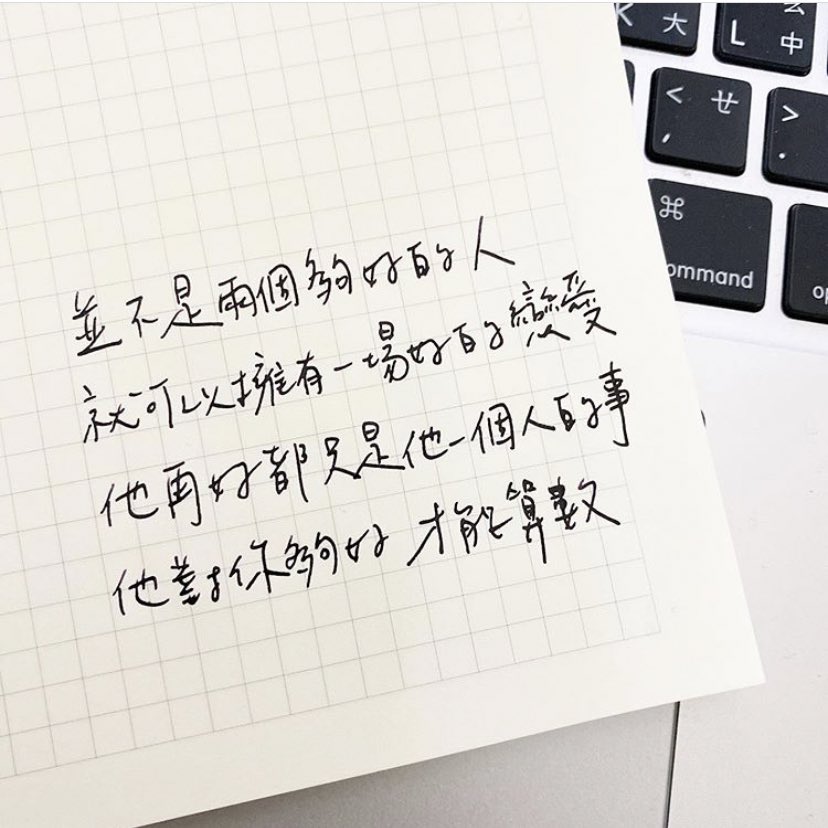 並不是兩個夠好的人
就可以擁有一場好的戀愛
他再好都只是他一個人的事
他對你夠好 才能算數
K 大
L 中
< せ
,
>
.
⌘
ommand